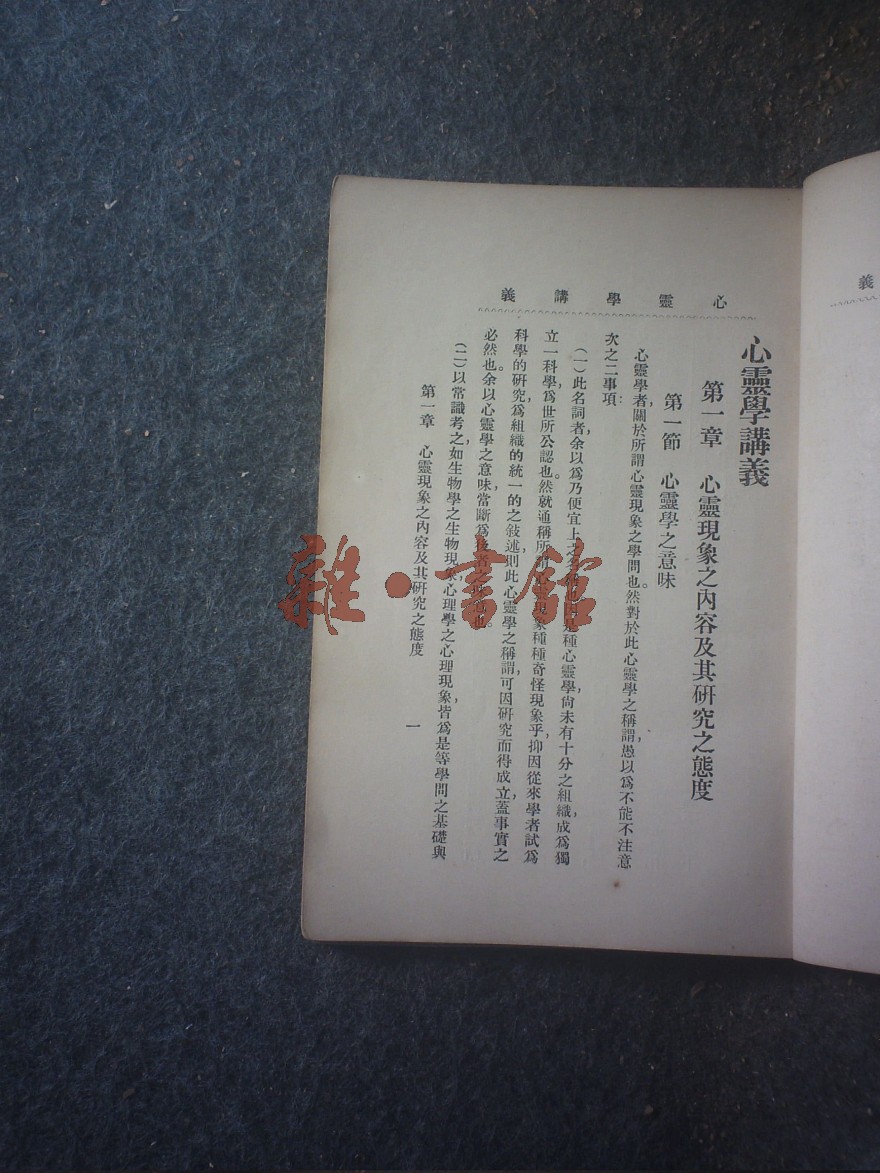 心靈學講義
心靈學講義
第一章 心靈現象之內容及其研究之態度
第一節 心靈學之意味
心靈學者,關於所謂心靈現象之學問也。然對於此心靈學之稱謂,愚以爲不能不注意
次之二事項:
(一)此名詞者,余以爲乃便宜上之名是種心靈學,尙未有十分之組織,成爲獨
立一科學,爲世所公認也。然就通稱所謂心靈現象種種奇怪現象乎,抑因從來學者試爲
科學的研究,爲組織的統一的之敍述,則此心靈學之稱謂,可因研究而得成立,蓋事實之
必然也。余以心靈學之意味,當斷爲後者之也。
(二)以常識考之,如生物學之生物現象,心理學之心理現象,皆爲是等學問之基礎與
第一章 心靈現象之內容及其研究之態度
一
義
雜·書館